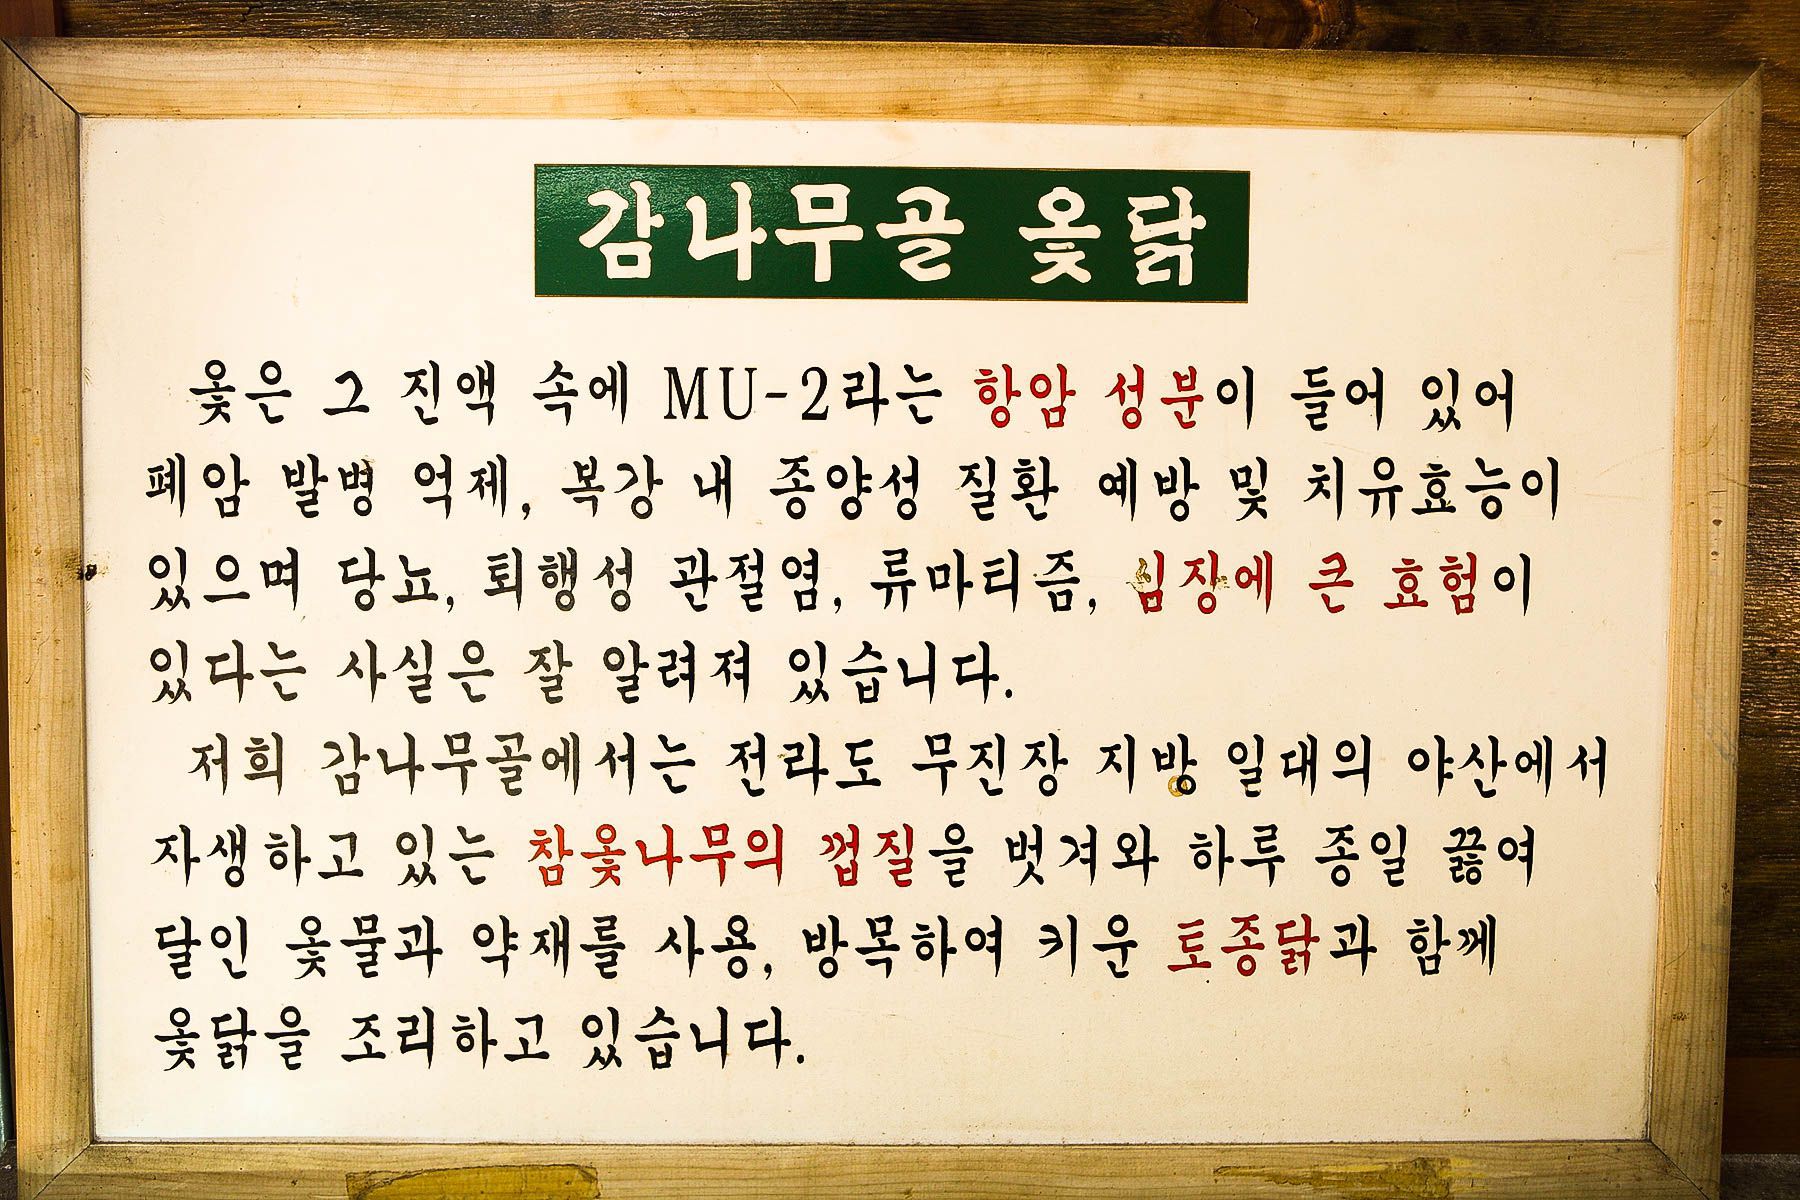 감나무골 옻닭
옻은 그 진액 속에 MU-2라는 항암 성분이 들어 있어
폐암 발병 억제, 복강 내 종양성 질환 예방 및 치유효능이
있으며 당뇨, 퇴행성 관절염, 류마티즘, 심장에 큰 효험이
있다는 사실은 잘 알려져 있습니다.
저희 감나무골에서는 전라도 무진장 지방 일대의 야산에서
자생하고 있는 참옻나무의 껍질을 벗겨와 하루 종일 끓여
달인 옻물과 약재를 사용, 방목하여 키운 토종닭과 함께
옻닭을 조리하고 있습니다.